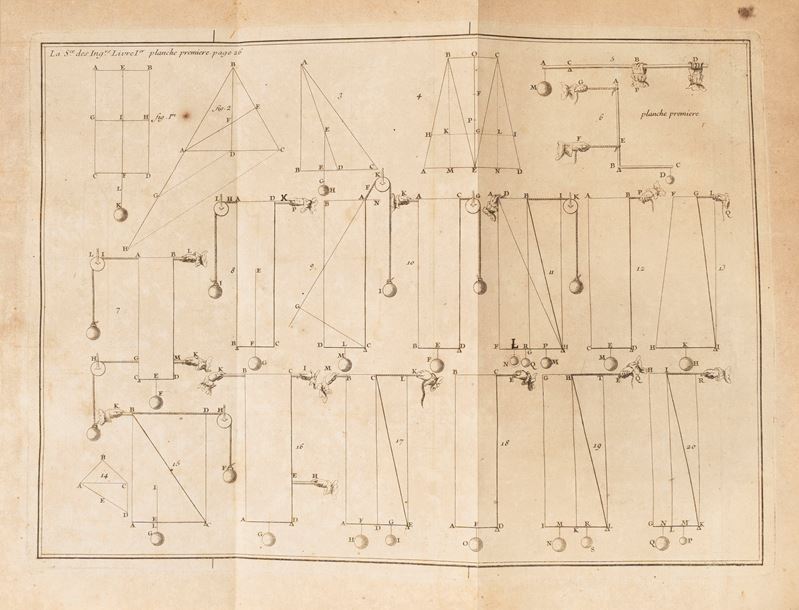 La S.ce des Ing.rs Livre I.er planche premiere. page 26
A E B
G I H fig. 1.re
C F D
L
K
B
fig. 2
E
F
A D C
G
H
A
3
E
B F D C
G H
B O C
4 F
P
H K G L I
A M E N D
A C 5 B D
M P
G A
6
planche premiere
F E
B C
D
L I A B L
7
H G M K
C E D
F
I H A D X P
8
E
I
B F C
G
K
F A N
B
9
G
I
D L C
M
K A C G
10
B E D
F
A D B I K
11
F L R P H
N G Q M
A B P
12
C E D
M
F G L Q
13
H K I
H
B
14
A C
E
D
K B D H
15
F
I
A E C
L
G
K B C I
16
E H
A D
G
M B C L K
17
A F D G E
H I
B C E
18
A F D
O
G H T E Q
19
I M K R L
N S
H I R
20
G N L M K
Q P